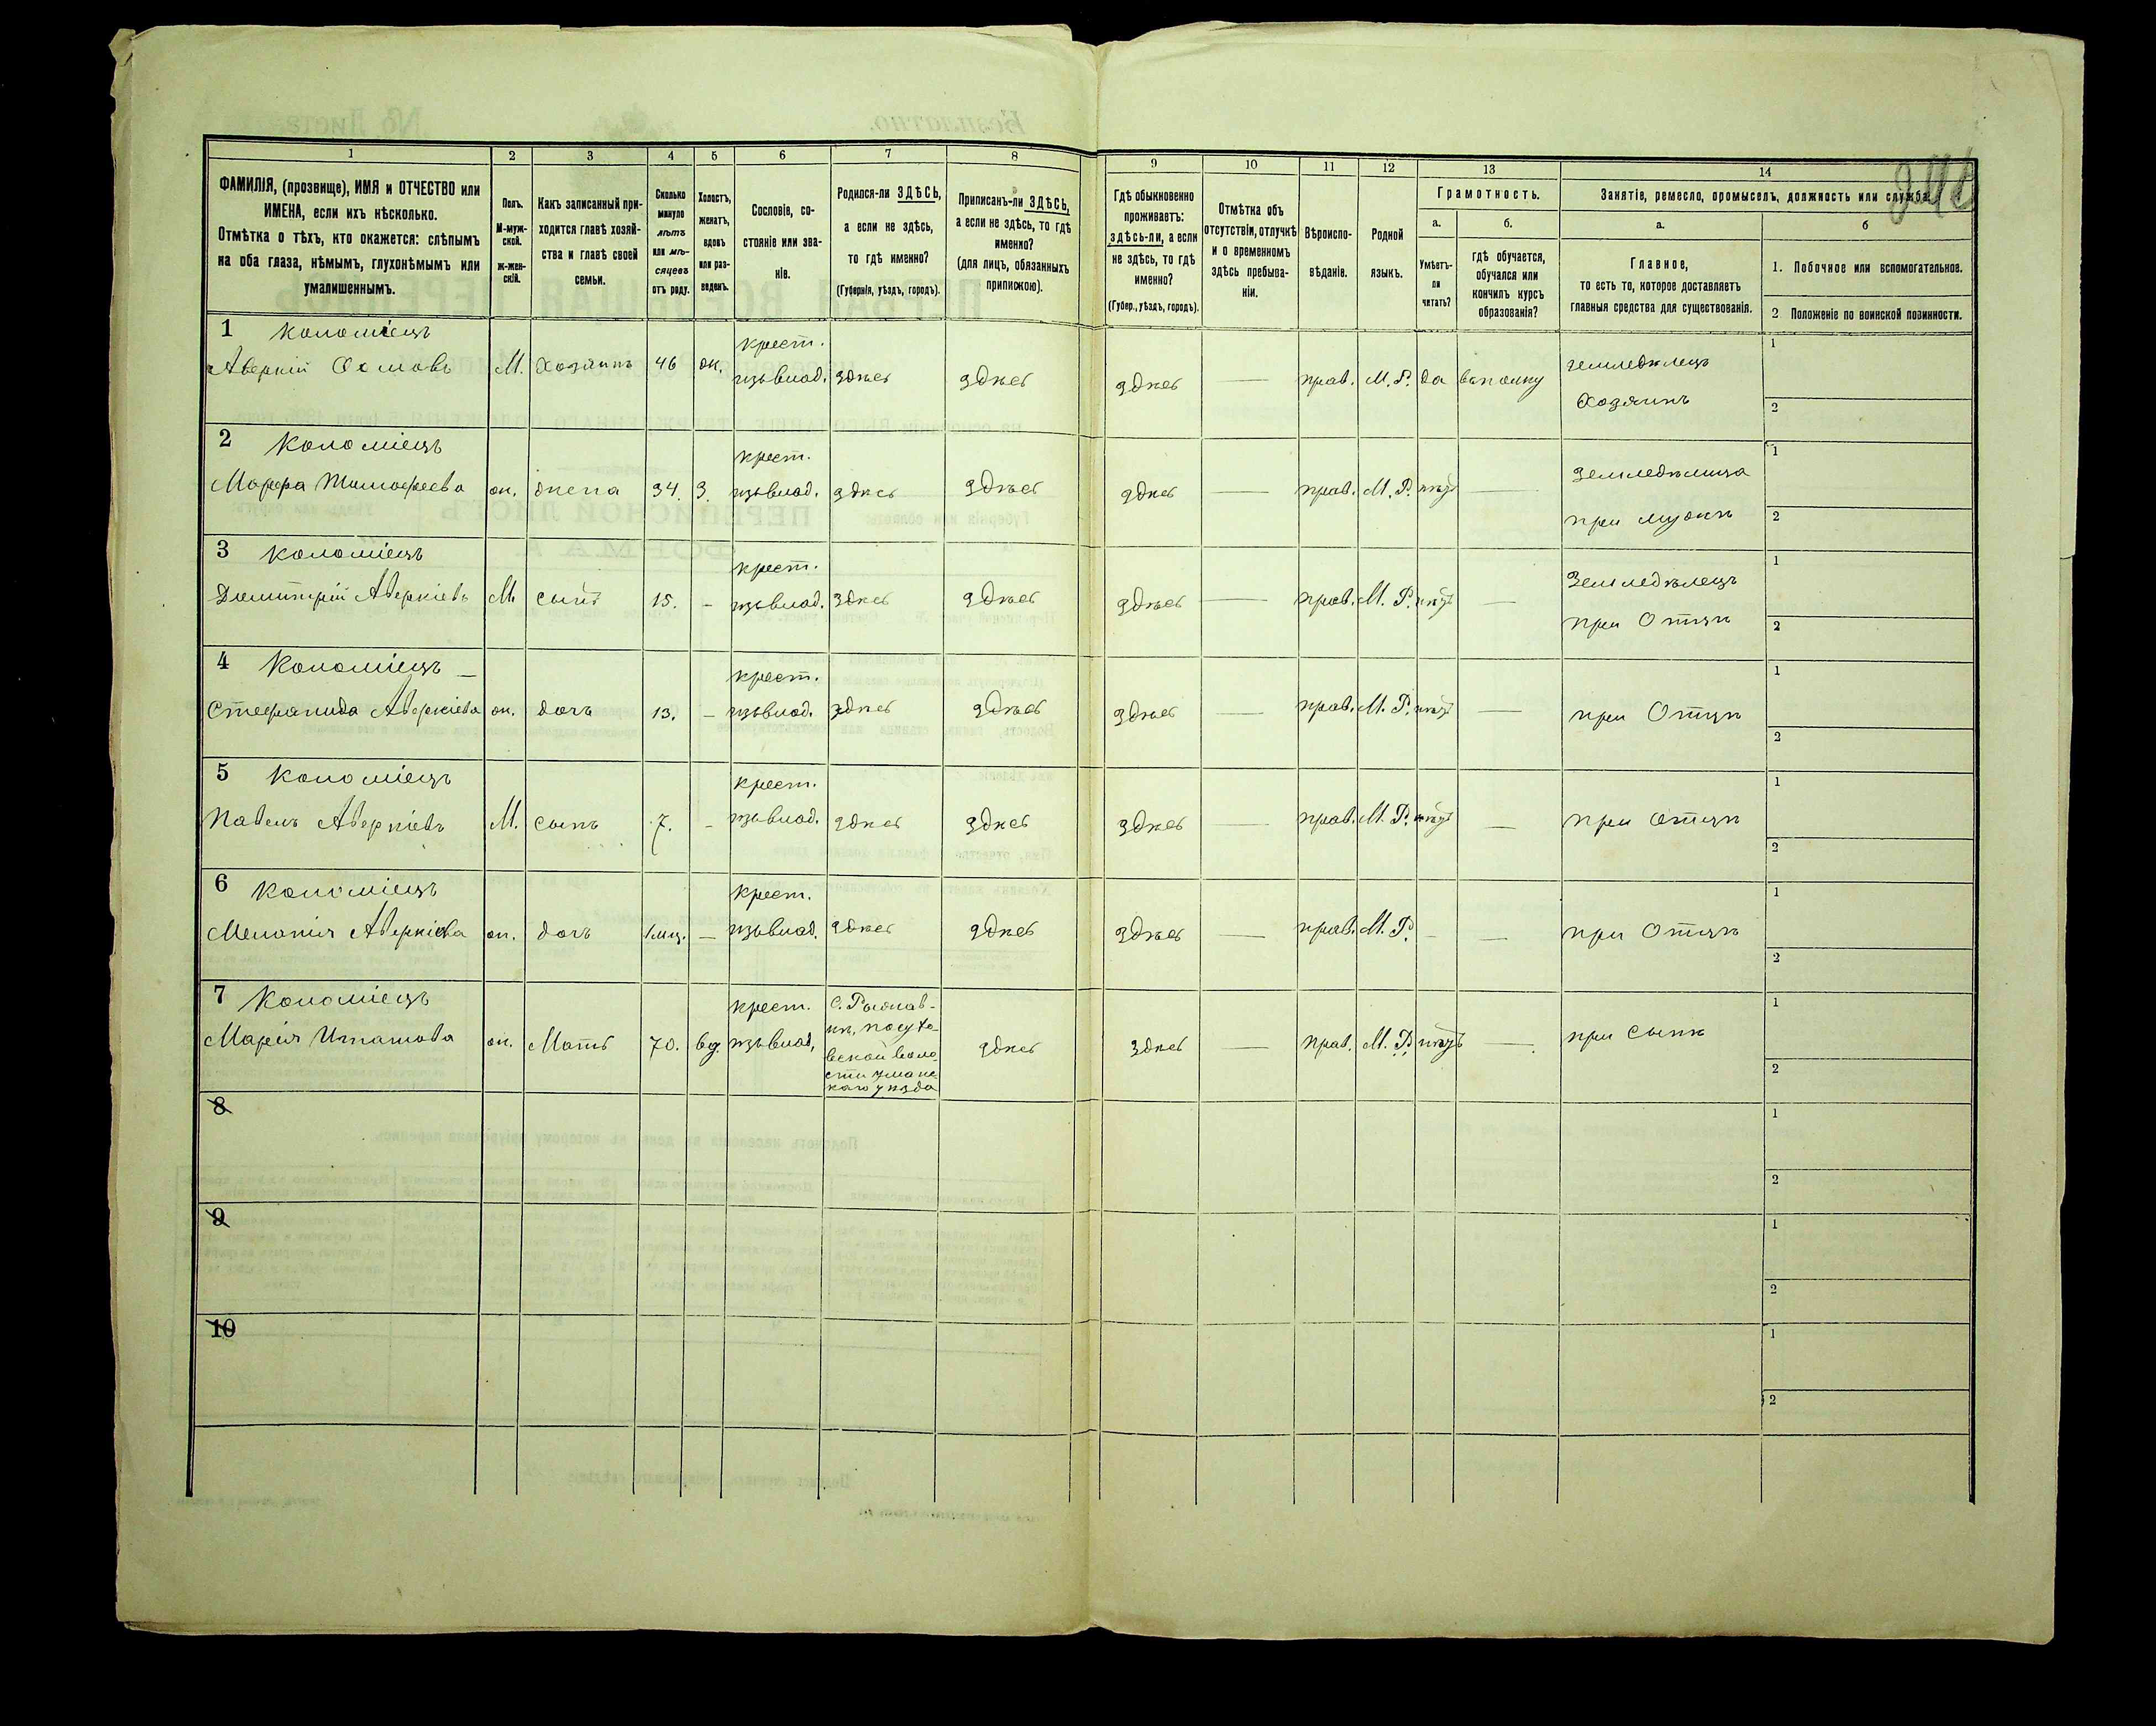 1 2 3 4 5 6 7 8 9 10 11 12 13 14
ФАМИЛІЯ, (прозвище), ИМЯ и ОТЧЕСТВО или
ИМЕНА, если ихъ нѣсколько.
Отмѣтка о тѣхъ, кто окажется: слѣпымъ
на оба глаза, нѣмымъ, глухонѣмымъ или
умалишеннымъ.
Полъ.
М-муж-
ской.
ж-жен-
скій.
Какъ записанный при-
ходится главѣ хозяй-
ства и главѣ своей
семьи.
Сколько
минуло
лѣтъ
или мѣ-
сяцевъ
отъ роду.
Холостъ,
женатъ,
вдовъ
или раз-
веденъ.
Сословіе, со-
стояніе или зва-
ніе.
Родился-ли ЗДѢСЬ,
а если не здѣсь,
то гдѣ именно?
(Губернія, уѣздъ, городъ).
Приписанъ-ли ЗДѢСЬ,
а если не здѣсь, то гдѣ
именно?
(для лицъ, обязанныхъ
припискою).
Гдѣ обыкновенно
проживаетъ:
здѣсь-ли, а если
не здѣсь, то гдѣ
именно?
(Губер., уѣздъ, городъ).
Отмѣтка объ
отсутствіи, отлучкѣ
и о временномъ
здѣсь пребыва-
ніи.
Вѣроиспо-
вѣданіе.
Родной
языкъ.
Грамотность.
а.
Умѣетъ-
ли
читать?
б.
гдѣ обучается,
обучался или
кончилъ курсъ
образованія?
Занятіе, ремесло, промыселъ, должность или служба.
а.
Главное,
то есть то, которое доставляетъ
главныя средства для существованія.
б
1. Побочное или вспомогательное.
2 Положеніе по воинской повинности.
1 Коломіецъ крест. земледѣлецъ 1
Аверкій М. Хозяинъ 46 ж. изъ влад. здѣсь здѣсь здѣсь — прав. М. Р. да въ полку Хозяинъ 2
2 Коломіецъ крест. Земледѣлица 1
Марфа Тимофеева ж. жена 34. З. изъ влад. здѣсь здѣсь здѣсь — прав. М. Р. нѣтъ — при мужѣ 2
3 Коломіецъ крест. Земледѣлецъ 1
Димитрій Аверкіевъ М. сынъ 15. – изъ влад. здѣсь здѣсь здѣсь — прав. М. Р. нѣтъ — при Отцѣ 2
4 Коломіецъ крест. 1
Стефанида Аверкіева ж. дочь 13. – изъ влад. здѣсь здѣсь здѣсь — прав. М. Р. нѣтъ — при Отцѣ 2
5 Коломіецъ крест. 1
Павелъ Аверкіевъ М. сынъ 7. – изъ влад. здѣсь здѣсь здѣсь — прав. М. Р. нѣтъ — при Отцѣ 2
6 Коломіецъ крест. 1
Меланія Аверкіева ж. дочь 1 мц. – изъ влад. здѣсь здѣсь здѣсь — прав. М. Р. – — при Отцѣ 2
7 Коломіецъ крест. С. 1
Марія Игнатова ж. Мать 70. вд. изъ влад. здѣсь здѣсь — прав. М. Р. нѣтъ — при сынѣ 2
вской воло-
сти Уманс-
каго уѣзда
8 1
2
9 1
2
10 1
2